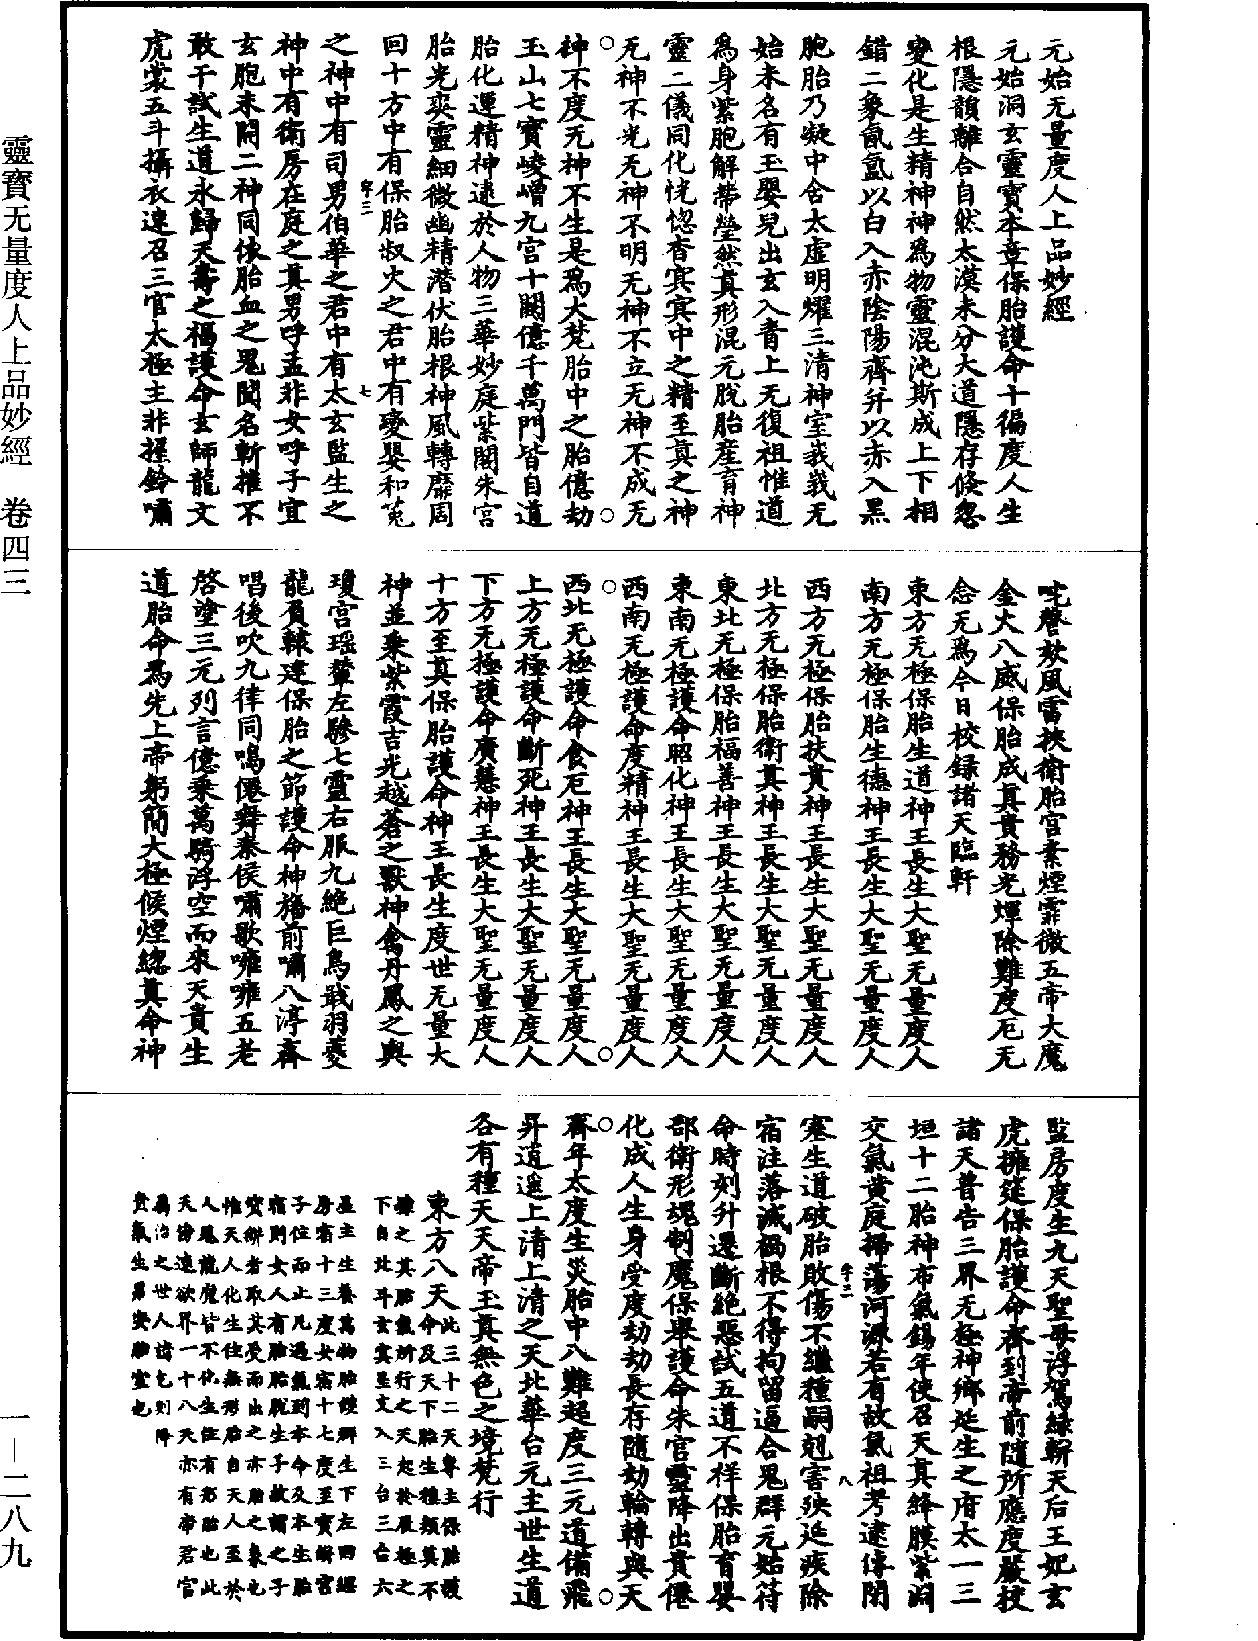 元始无量度人上品妙經
元始洞玄靈寶本章保胎護命十徧度人生
根隱韻離合自然太漠未分大道隱存倏忽
變化是生精神神為物靈混沌斯成上下相
錯二象氤氳以白入赤陰陽齊并以赤入黑
胞胎乃凝中含太虛明耀三清神室峩峩无
始未名有玉嬰兒出玄入青上无復祖惟道
為身紫胞解帶瑩然真形混元脫胎產育神
靈二儀同化恍惚杳冥冥中之精至真之神
无神不光无神不明无神不立无神不成无
神不度无神不生是為大梵胎中之胎億劫
玉山七寶崚嶒九宮十闕億千萬門皆自道
胎化運精神遠於人物三華妙庭紫閣朱宮
胎光奕靈細微幽精潛伏胎根神風轉靡周
回十方中有保胎叔火之君中有變嬰和菟
之神中有司男伯華之君中有太玄監生之
神中有衛房在庭之真男呼孟非女呼子宜
玄胞未開二神同依胎血之鬼聞名斬摧不
敢干試生道永歸天壽之福護命玄師龍文
虎裳五斗攝衣遠召三官太極主非握鈴嘯
叱麾妖風雷挾衛胎宮素煙霏微五帝大魔
金火八威保胎成真貴務光煇除難度厄无
念无為今日校錄諸天臨軒
東方无極保胎生道神王長生大聖无量度人
南方无極保胎生德神王長生大聖无量度人
西方无極保胎扶貴神王長生大聖无量度人
北方无極保胎衛真神王長生大聖无量度人
東北无極保胎福善神王長生大聖无量度人
東南无極護命昭化神王長生大聖无量度人
西南无極護命度精神王長生大聖无量度人
西北无極護命食厄神王長生大聖无量度人
上方无極護命斷死神王長生大聖无量度人
下方无極護命廣慧神王長生大聖无量度人
十方至真保胎護命神王長生度世无量大
神並乘紫霞吉光越蒼之獸神禽丹鳳之輿
瓊宮瑶輦左驂七靈右服九絶巨鳥戢羽夔
龍負轅建保胎之節護命神旛前嘯八渟齊
唱後吹九律同鳴僊舞秦侯嘯歌噰噰五老
啓塗三元列言億乘萬騎浮空而來天賁生
道胎命為先上帝躬簡大極候煙總真命神
監房度生九天聖母浮駕綠軿天后王妃玄
虎擁筵保胎護命齊到帝前隨所應度嚴校
諸天普告三界无極神鄉延生之府太一三
垣十二胎神布氣錫年使召天真絳膜紫洞
交氣黃庭掃蕩河源若有故氣祖考逮傳閉
塞生道破胎敗傷不繼種嗣剋害殃延疾除
宿注落滅禍根不得拘留逼合鬼群元始符
命時刻升遷斷絕惡試五道不祥保胎育嬰
部衛形魂制魔保舉護命朱官靈降出貴僊
化成人生身受度劫劫長存隨劫輪轉與天
齊年太度生炎胎中八難超度三元道備飛
昇逍遥上清上清之天北華台元主世生道
各有種天天帝玉真無色之境梵行
東方八天此三十二天專主保胎護命及天下胎生種類莫不
稟之其胎氣所行之天起於辰極之
下自北斗玄冥星文入三台三台六
星主生養萬物胎種孵生下左四經
房宿十三度女宿十七度至寶瓶宮
子位而止凡遇氣到本命及本生胎
宿則女人有胎胎既生子故謂之子
寶瓶者取其受而出之亦胎之象也
惟天人化生住無形胎自天人至於
人鬼龍魔皆不化生住有形胎也此
天㫄連欲界一十八天亦有帝君官
屬治之世人請乞則降
貴氣生男安胎室也
靈寶无量度人上品妙經　卷四三
一—二八九